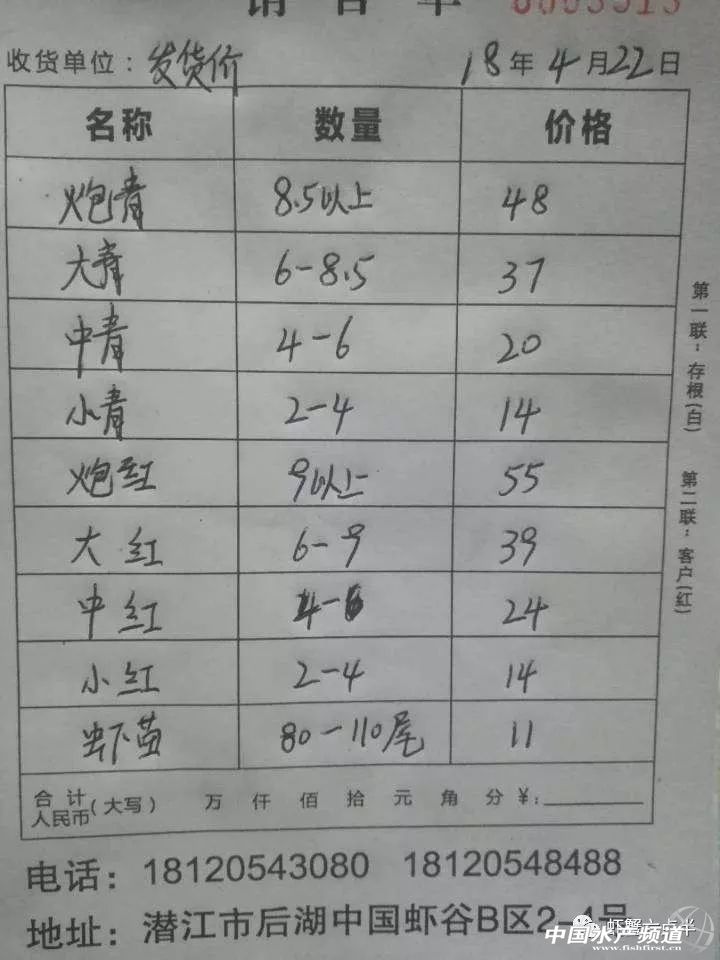 销售单 0003513
收货单位：发货价 18年4月22日
名称 数量 价格
炮青 8.5以上 48
大青 6-8.5 37
中青 4-6 20
小青 2-4 14
炮红 9以上 55
大红 6-9 39
中红 4-6 24
小红 2-4 14
虾苗 80-110尾 11
合计人民币(大写) 万 仟 佰 拾 元 角 分 ¥：
第一联：存根(白) 第二联：客户(红)
电话：18120543080 18120548488
地址：潜江市后湖中国虾谷B区2-4号
虾蟹六点半
中国水产频道
www.fishfirst.cn